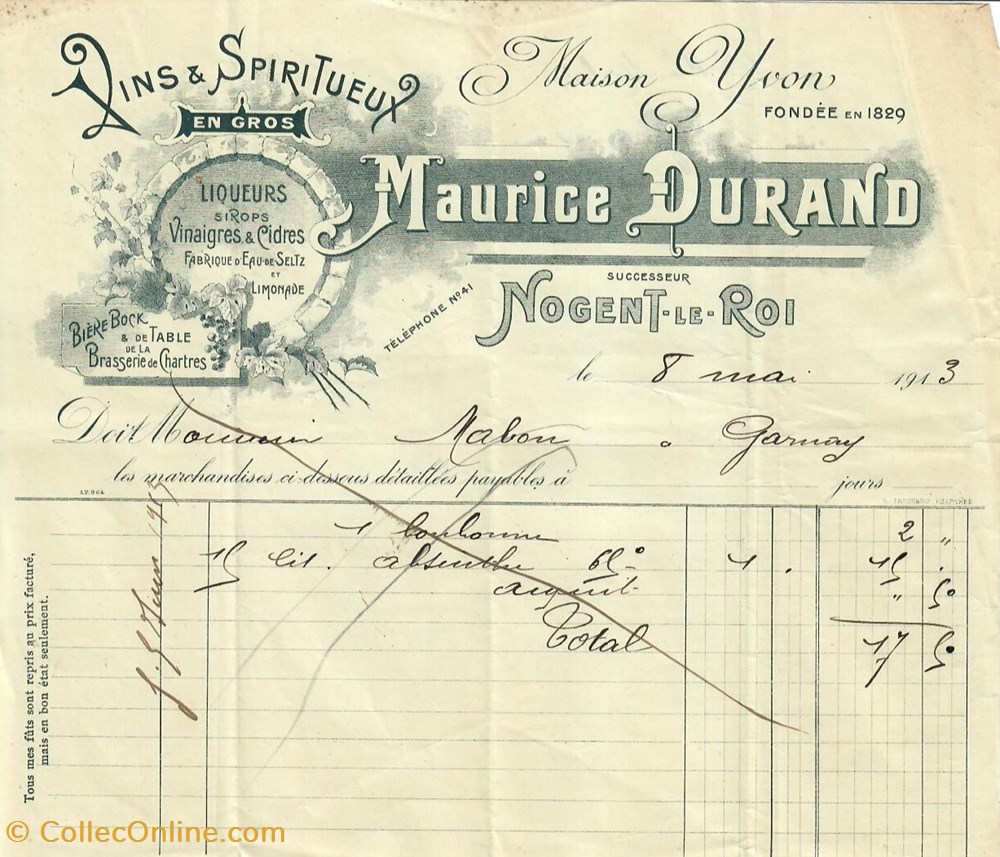 VINS & SPIRITUEUX
EN GROS
LIQUEURS
SIROPS
Vinaigres & Cidres
FABRIQUE D'EAU DE SELTZ
ET
LIMONADE
BIÈRE BOCK
& DE TABLE
DE LA
Brasserie de Chartres
Maison Yvon
FONDÉE EN 1829
Maurice DURAND
SUCCESSEUR
NOGENT-LE-ROI
TÉLÉPHONE No 41
le 8 mai 1913
Doit Monsieur Mabon a Garnay
les marchandises ci-dessous détaillées payables à jours
1 bonbonne 2 "
15 lit. absenthe 65° 1 . 15 .
acquit. " 50
Total 17 50
Juin 1913
Tous mes fûts sont repris au prix facturé,
mais en bon état seulement.
© CollecOnline.com